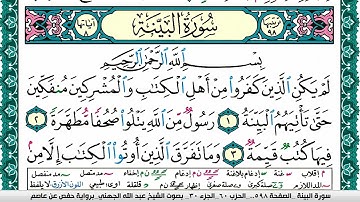 سُورَةُ البَيِّنَةِ
بِسْمِ اللَّهِ الرَّحْمَٰنِ الرَّحِيمِ
لَمْ يَكُنِ الَّذِينَ كَفَرُوا مِنْ أَهْلِ الْكِتَابِ وَالْمُشْرِكِينَ مُنفَكِّينَ
حَتَّىٰ تَأْتِيَهُمُ الْبَيِّنَةُ ١ رَسُولٌ مِّنَ اللَّهِ يَتْلُو صُحُفًا مُّطَهَّرَةً ٢
فِيهَا كُتُبٌ قَيِّمَةٌ ٣ وَمَا تَفَرَّقَ الَّذِينَ أُوتُوا الْكِتَابَ إِلَّا مِن
سورة البينة الصفحة ٥٩٨ الحزب ٦٠ الجزء ٣٠ بصوت الشيخ عبد الله الجهني برواية حفص عن عاصم